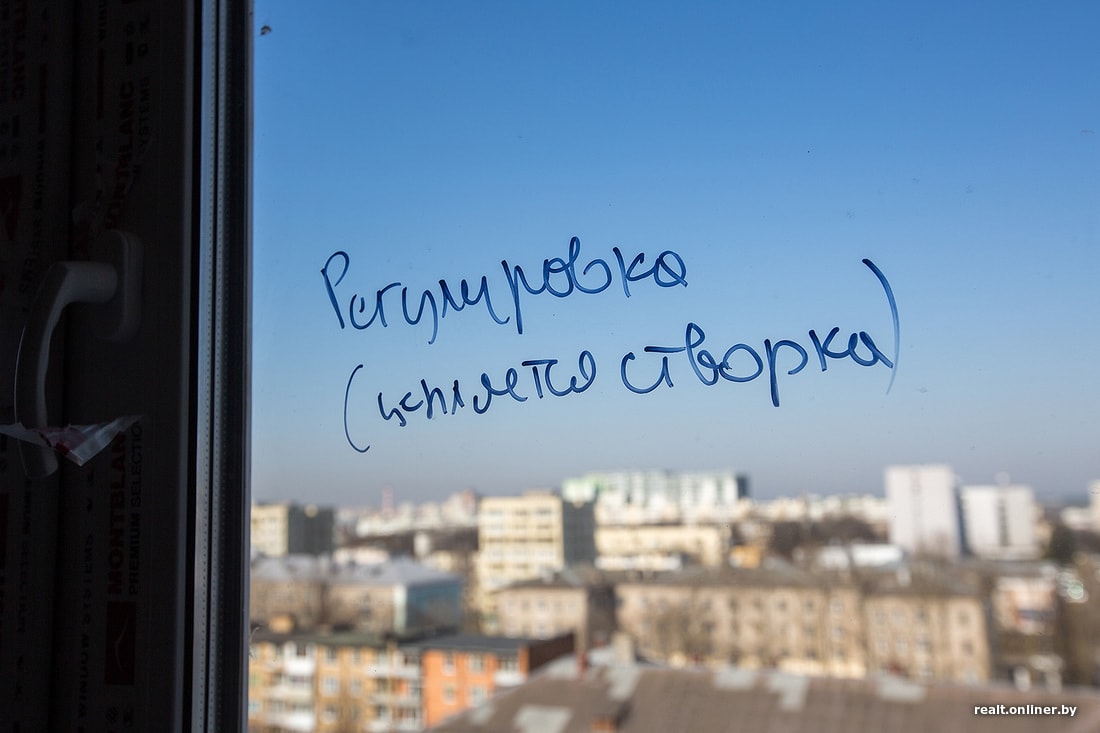 Регулировка
(цепляется створка)
MONTBLANC
PREMIUM SELECTION
realt.onliner.by